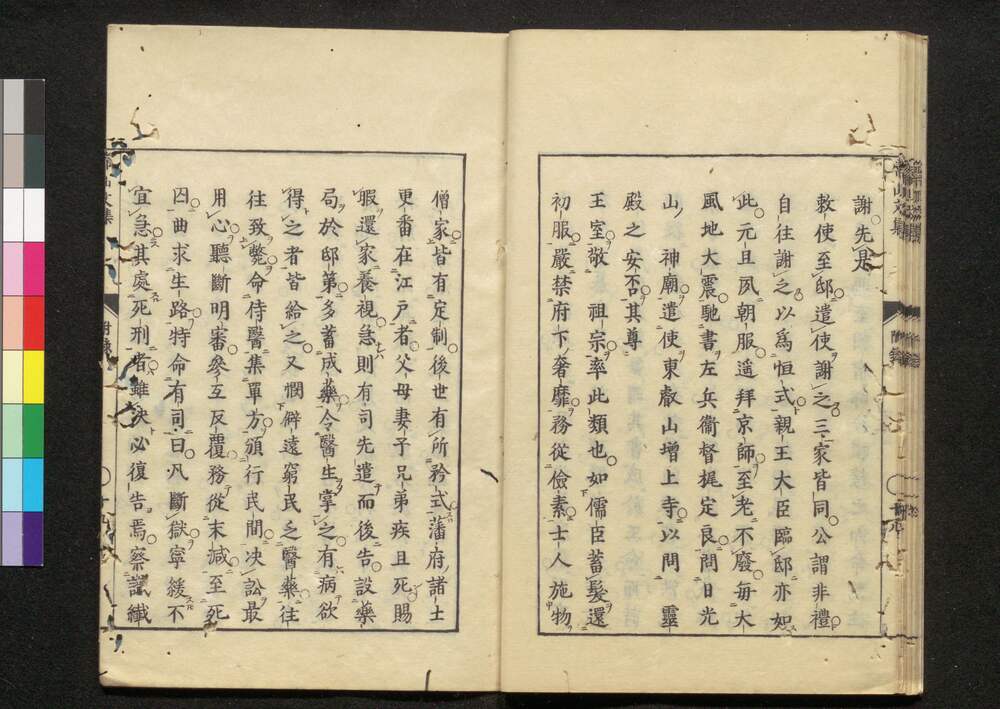 謝先是
敕使至邸遣使謝之三家皆同公謂非禮
自往謝之以爲恒式親王大臣臨邸亦如
此元旦夙朝服遥拜京師至老不廢毎大
風地大震馳書左兵衞督援定良問日光
山神廟遣使東叡山增上寺以問靈
殿之安否其尊
王室敬祖宗率此類也如儒臣蓄髮還
初服嚴禁府下奢靡務從儉素士人施物
僧家皆有定制後世有所矜式藩府諸士
更番在江戸者父母妻子兄弟疾且死賜
暇還家養視急則有司先遣而後告設藥
局於邸第多蓄成藥令醫生掌之有病欲
得之者皆給之又憫僻遠窮民乏醫藥往
往致斃命侍醫集單方頒行民間决訟最
用心聽斷明審參互反覆務從末減至死
囚曲求生路特命有司曰凡斷獄寧緩不
宜急其處死刑者雖决必復告焉察識纎
文集